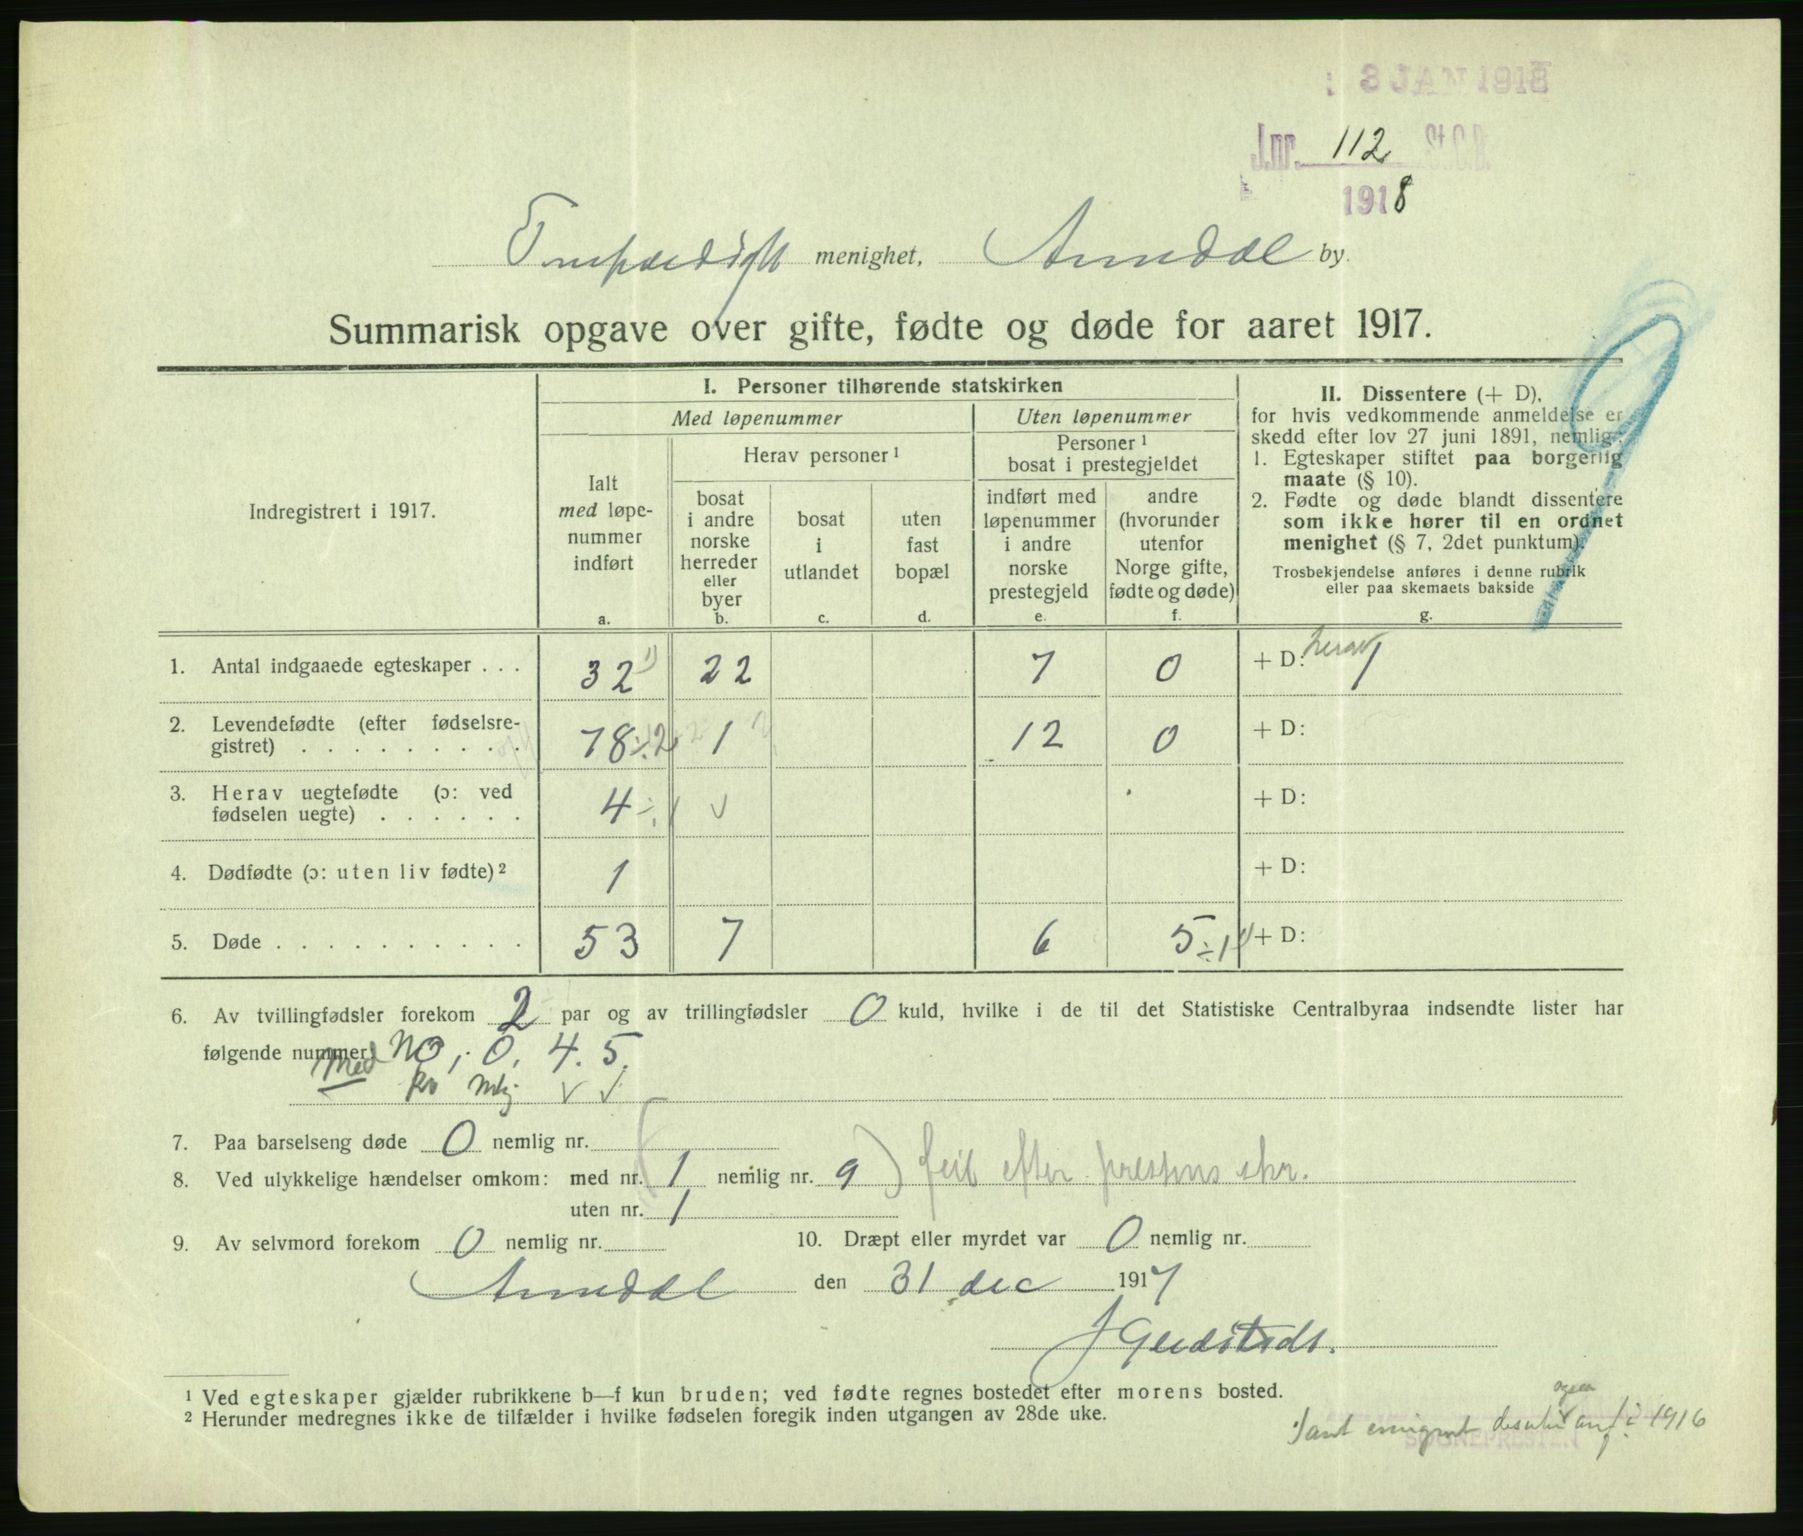 8 JAN 1918
J.nr. 112 St.C.B.
1918
menighet, Arendal by.
Summarisk opgave over gifte, fødte og døde for aaret 1917.
Indregistrert i 1917.
I. Personer tilhørende statskirken
Med løpenummer
Uten løpenummer
Ialt
med løpe-
nummer
indført
a.
Herav personer ¹
bosat
i andre
norske
herreder
eller
byer
b.
bosat
i
utlandet
c.
uten
fast
bopæl
d.
Personer ¹
bosat i prestegjeldet
indført med
løpenummer
i andre
norske
prestegjeld
e.
andre
(hvorunder
utenfor
Norge gifte,
fødte og døde)
f.
II. Dissentere (+ D),
for hvis vedkommende anmeldelse er
skedd efter lov 27 juni 1891, nemlig:
1. Egteskaper stiftet paa borgerlig
maate (§ 10).
2. Fødte og døde blandt dissentere
som ikke hører til en ordnet
menighet (§ 7, 2det punktum).
Trosbekjendelse anføres i denne rubrik
eller paa skemaets bakside
g.
9
1. Antal indgaaede egteskaper . . . 32 ¹) 22 7 0 + D: herav 1
2. Levendefødte (efter fødselsre-
gistret) . . . . . . . . . 78 ÷ 2 1 12 0 + D:
3. Herav uegtefødte (ɔ: ved
fødselen uegte) . . . . . . 4 ÷ 1 √ + D:
4. Dødfødte (ɔ: uten liv fødte) ² 1 + D:
5. Døde . . . . . . . . . . 53 7 6 5 ÷ 1 + D:
6. Av tvillingfødsler forekom 2 par og av trillingfødsler 0 kuld, hvilke i de til det Statistiske Centralbyraa indsendte lister har
følgende nummer: No, 0, 4. 5.
Med kv mk √ √
7. Paa barselseng døde 0 nemlig nr.
8. Ved ulykkelige hændelser omkom: med nr. (1 nemlig nr. 9) feil efter prestens skr.
uten nr. 1
9. Av selvmord forekom 0 nemlig nr.
10. Dræpt eller myrdet var 0 nemlig nr.
Arendal den 31 dec 1917
¹ Ved egteskaper gjælder rubrikkene b—f kun bruden; ved fødte regnes bostedet efter morens bosted.
² Herunder medregnes ikke de tilfælder i hvilke fødselen foregik inden utgangen av 28de uke.
ogsaa
i 1916
SOGNEPRESTEN